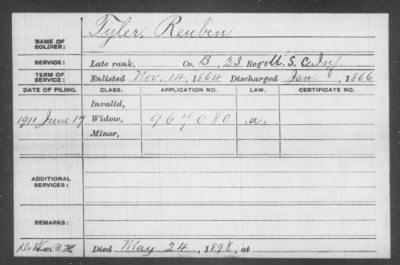 NAME OF SOLDIER: Tyler, Reuben
SERVICE: Late rank, Co. B, 23 Reg't U.S.C. Inf
TERM OF SERVICE: Enlisted Nov. 14, 1864 Discharged Jan, 1866
DATE OF FILING. CLASS. APPLICATION NO. LAW. CERTIFICATE NO.
Invalid,
1911 June 17 Widow, 967080 a.
Minor,
ADDITIONAL SERVICES:
REMARKS:
Died May 24, 1898, at